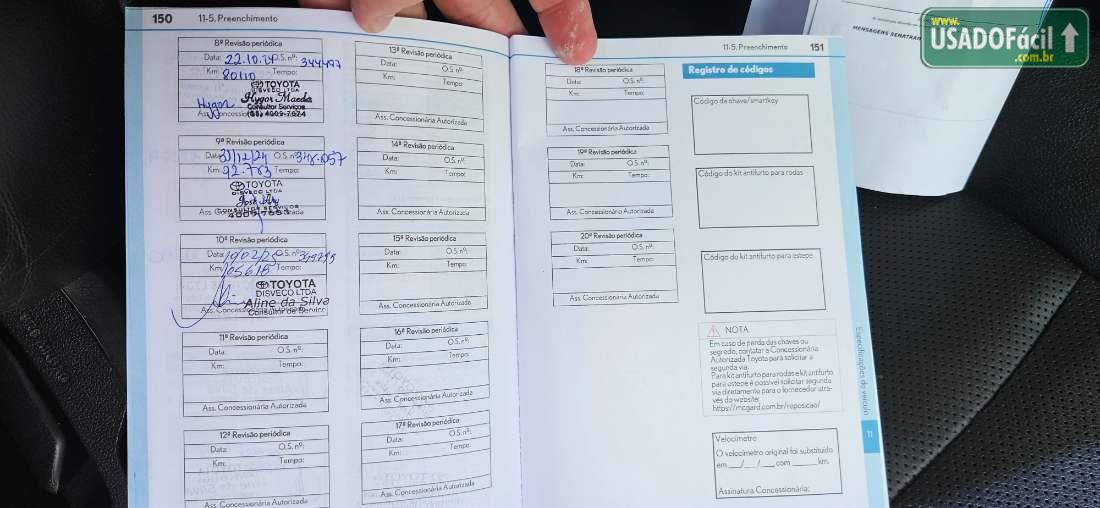 150 11-5. Preenchimento
8ª Revisão periódica
Data: 22.10.24 O.S. nº: 344497
Km: 80110 Tempo:
TOYOTA
DISVECO LTDA
Hygor Maeda
Consultor Serviços
Hygor
Ass. Concessionária Autorizada
9ª Revisão periódica
Data: 31/12/24 O.S. nº: 348.057
Km: 92.783 Tempo:
TOYOTA
DISVECO LTDA
CONSULTOR SERVIÇOS
Ass. Concessionária Autorizada
10ª Revisão periódica
Data: O.S. nº:
Km: 105618 Tempo:
TOYOTA
DISVECO LTDA
Aline da Silva
Ass. Concessionária Autorizada
Consultor de Serviços
11ª Revisão periódica
Data: O.S. nº:
Km: Tempo:
Ass. Concessionária Autorizada
12ª Revisão periódica
Data: O.S. nº:
Km: Tempo:
Ass. Concessionária Autorizada
13ª Revisão periódica
Data: O.S. nº:
Km: Tempo:
Ass. Concessionária Autorizada
14ª Revisão periódica
Data: O.S. nº:
Km: Tempo:
Ass. Concessionária Autorizada
15ª Revisão periódica
Data: O.S. nº:
Km: Tempo:
Ass. Concessionária Autorizada
16ª Revisão periódica
Data: O.S. nº:
Km: Tempo:
Ass. Concessionária Autorizada
17ª Revisão periódica
Data: O.S. nº:
Km: Tempo:
Ass. Concessionária Autorizada
11-5. Preenchimento 151
18ª Revisão periódica
Data: O.S. nº:
Km: Tempo:
Ass. Concessionária Autorizada
19ª Revisão periódica
Data: O.S. nº:
Km: Tempo:
Ass. Concessionária Autorizada
20ª Revisão periódica
Data: O.S. nº:
Km: Tempo:
Ass. Concessionária Autorizada
Registro de códigos
Código de chave/smartkey
Código do kit antifurto para rodas
Código do kit antifurto para estepe
NOTA
Em caso de perda das chaves ou
segredo, contatar a Concessionária
Autorizada Toyota para solicitar a
segunda via.
Para kit antifurto para rodas e kit antifurto
para estepe é possível solicitar segunda
via diretamente para o fornecedor atra-
vés do website:
https://mcgard.com.br/reposicao/
Velocímetro
O velocímetro original foi substituído
em __/__/__ com ____ km.
Assinatura Concessionária:
Especificações do veículo
11
www.
USADOFácil
.com.br